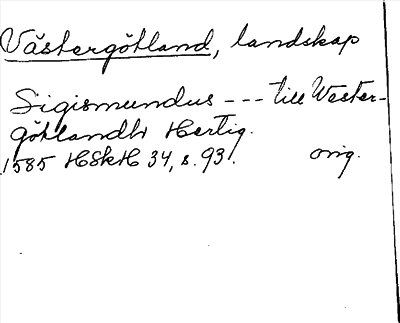 Västergötland, landskap
Sigismundus --- till Wester-
götlandh Hertig.
1585 HSkH 34, s. 93. orig.